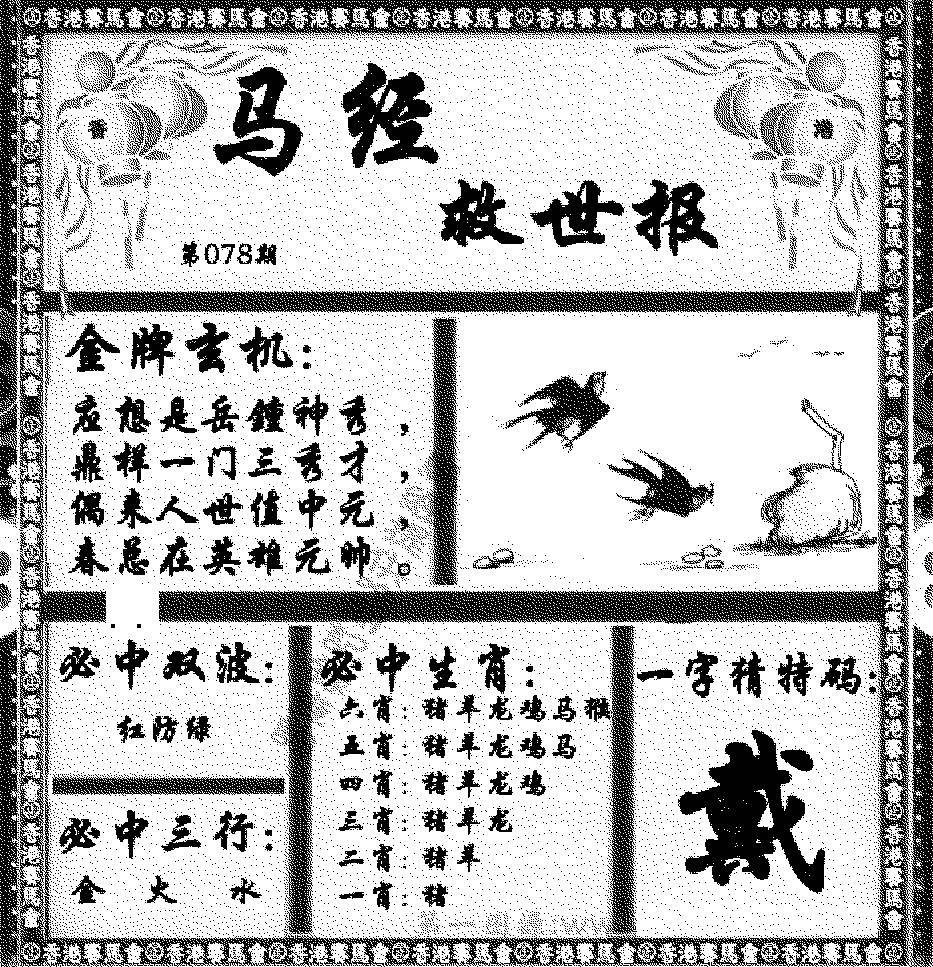 香港賽馬會 香港賽馬會 香港賽馬會 香港賽馬會 香港賽馬會 香港賽馬會 香港賽馬會
香
港
马经
救世报
第078期
金牌玄机：
应想是岳鐘神秀，
鼎样一门三秀才，
偶来人世值中元，
春总在英雄元帅。
必中双波：
红防绿
必中三行：
金 火 水
必中生肖：
六肖：猪羊龙鸡马猴
五肖：猪羊龙鸡马
四肖：猪羊龙鸡
三肖：猪羊龙
二肖：猪羊
一肖：猪
一字精特码：
戴
香港賽馬會 香港賽馬會 香港賽馬會 香港賽馬會 香港賽馬會 香港賽馬會 香港賽馬會